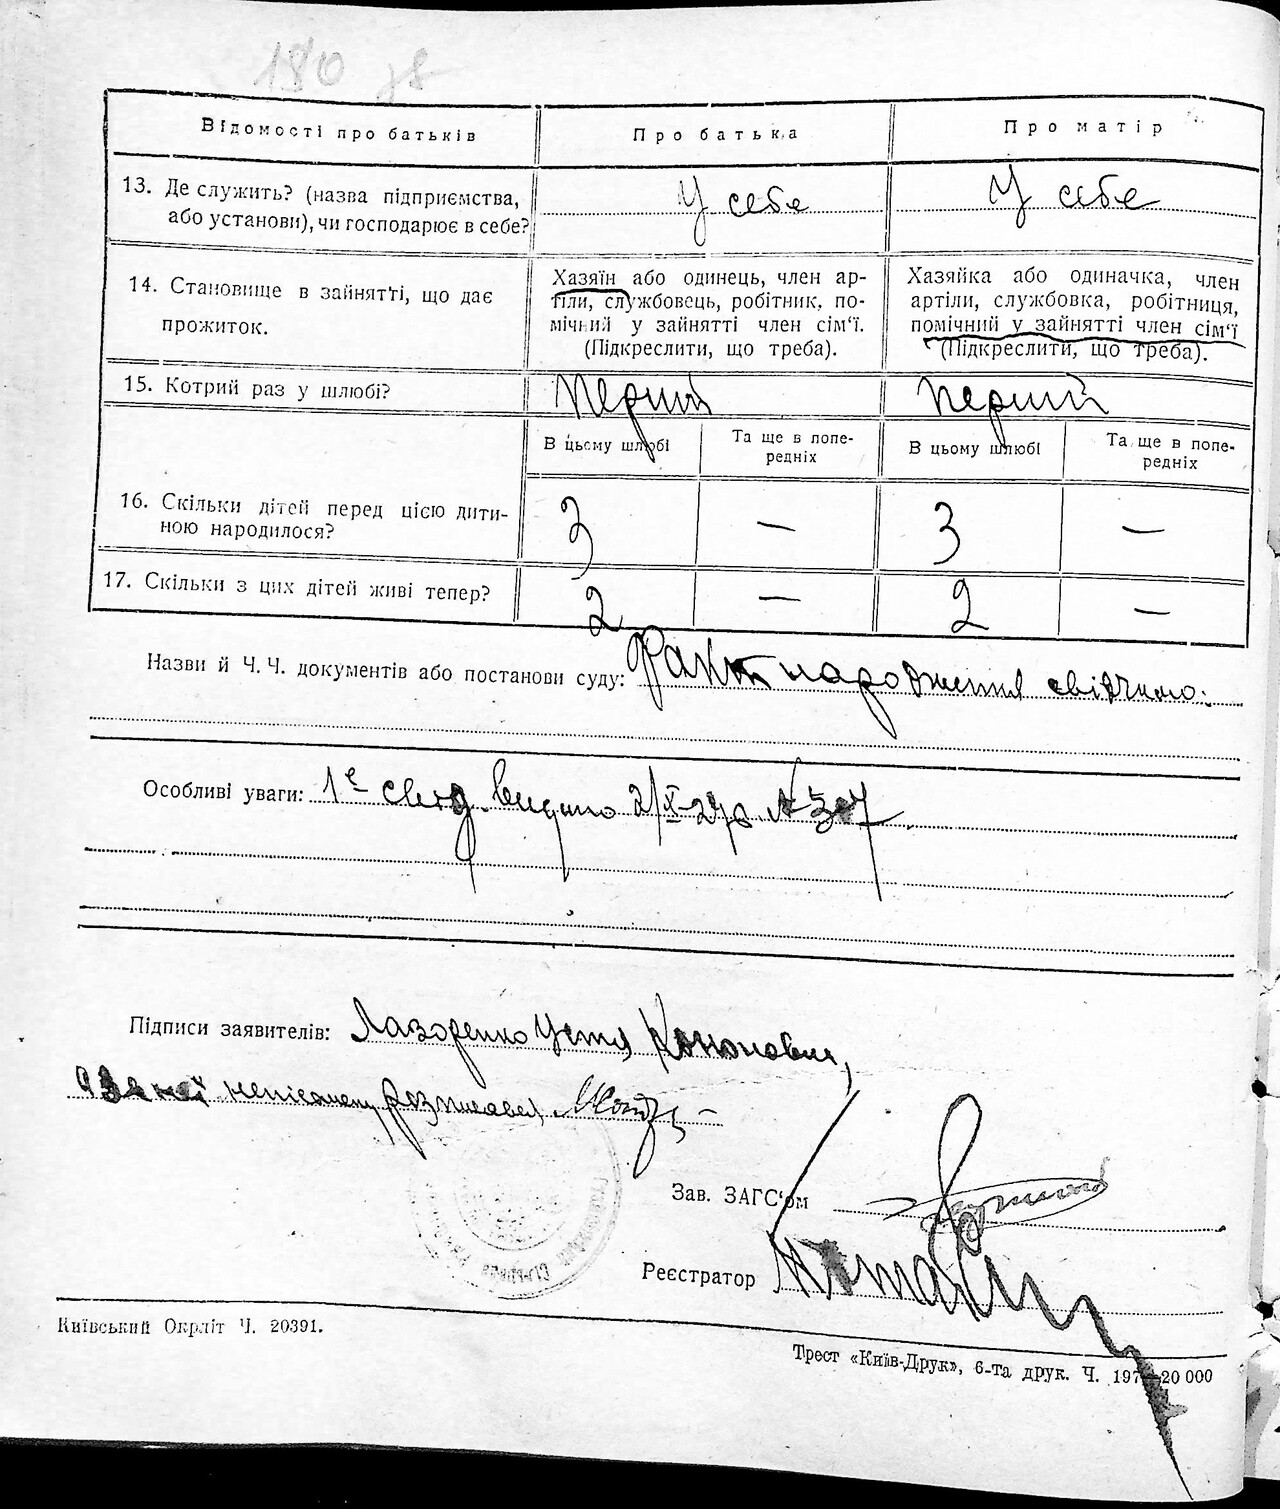 180 зв
Відомості про батьків
Про батька
Про матір
13. Де служить? (назва підприємства,
або установи), чи господарює в себе?
У себе
У себе
14. Становище в зайнятті, що дає
прожиток.
Хазяїн або одинець, член ар-
тіли, службовець, робітник, по-
мічний у зайнятті член сім'ї.
(Підкреслити, що треба).
Хазяйка або одиначка, член
артіли, службовка, робітниця,
помічний у зайнятті член сім'ї
(Підкреслити, що треба).
15. Котрий раз у шлюбі?
перший
перший
В цьому шлюбі
Та ще в попе-
редніх
В цьому шлюбі
Та ще в попе-
редніх
16. Скільки дітей перед цією дити-
ною народилося?
3
—
3
—
17. Скільки з цих дітей живі тепер?
2
—
2
—
Назви й Ч. Ч. документів або постанови суду: Факт народження свідчимо:
Особливі уваги: 1е свід. видано 2/X-27р № 307
Підписи заявителів: Лазоренко Устя Кононовна,
а за неї неписьмену розписався
Зав. ЗАГС'ом
Реєстратор
Київський Окрліт Ч. 20391.
Трест «Київ-Друк», 6-та друк. Ч. 197 —20 000